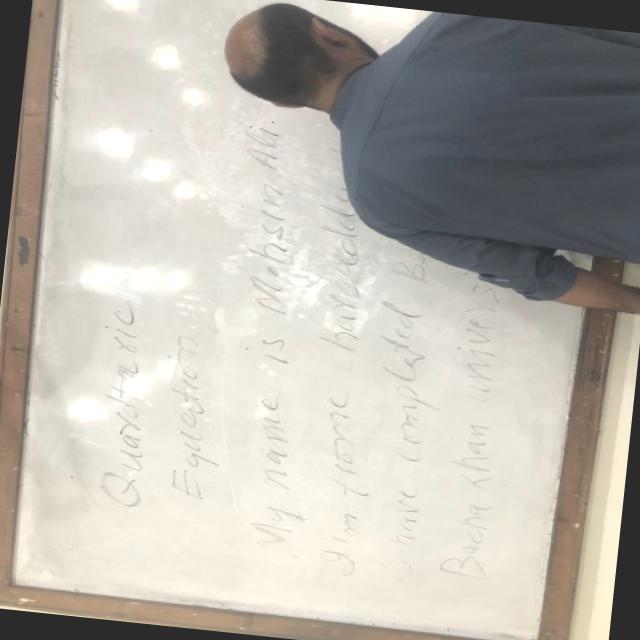 Quardtaric
Equation.
My name is Mohsin Ali.
I'm frome charsadda
I have completed B
Bacha khan univers